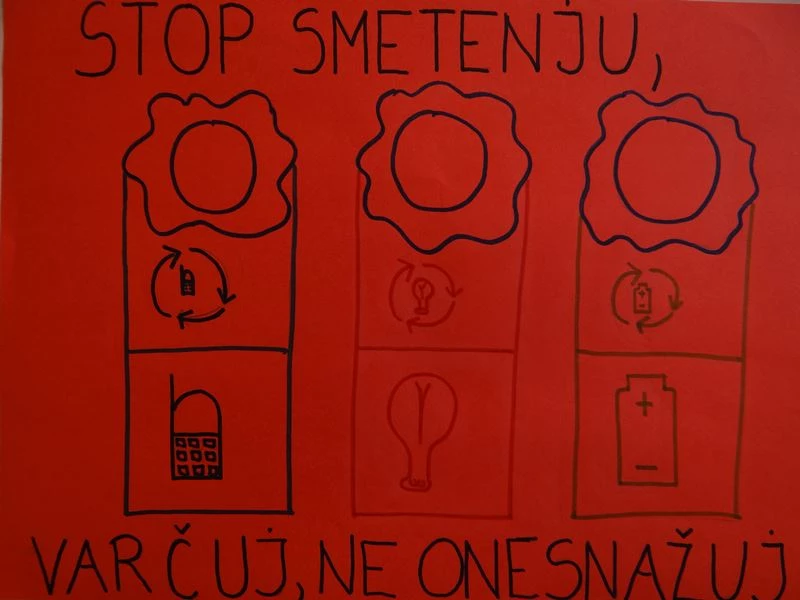 STOP SMETENJU,
+
+
–
–
VARČUJ, NE ONESNAŽUJ